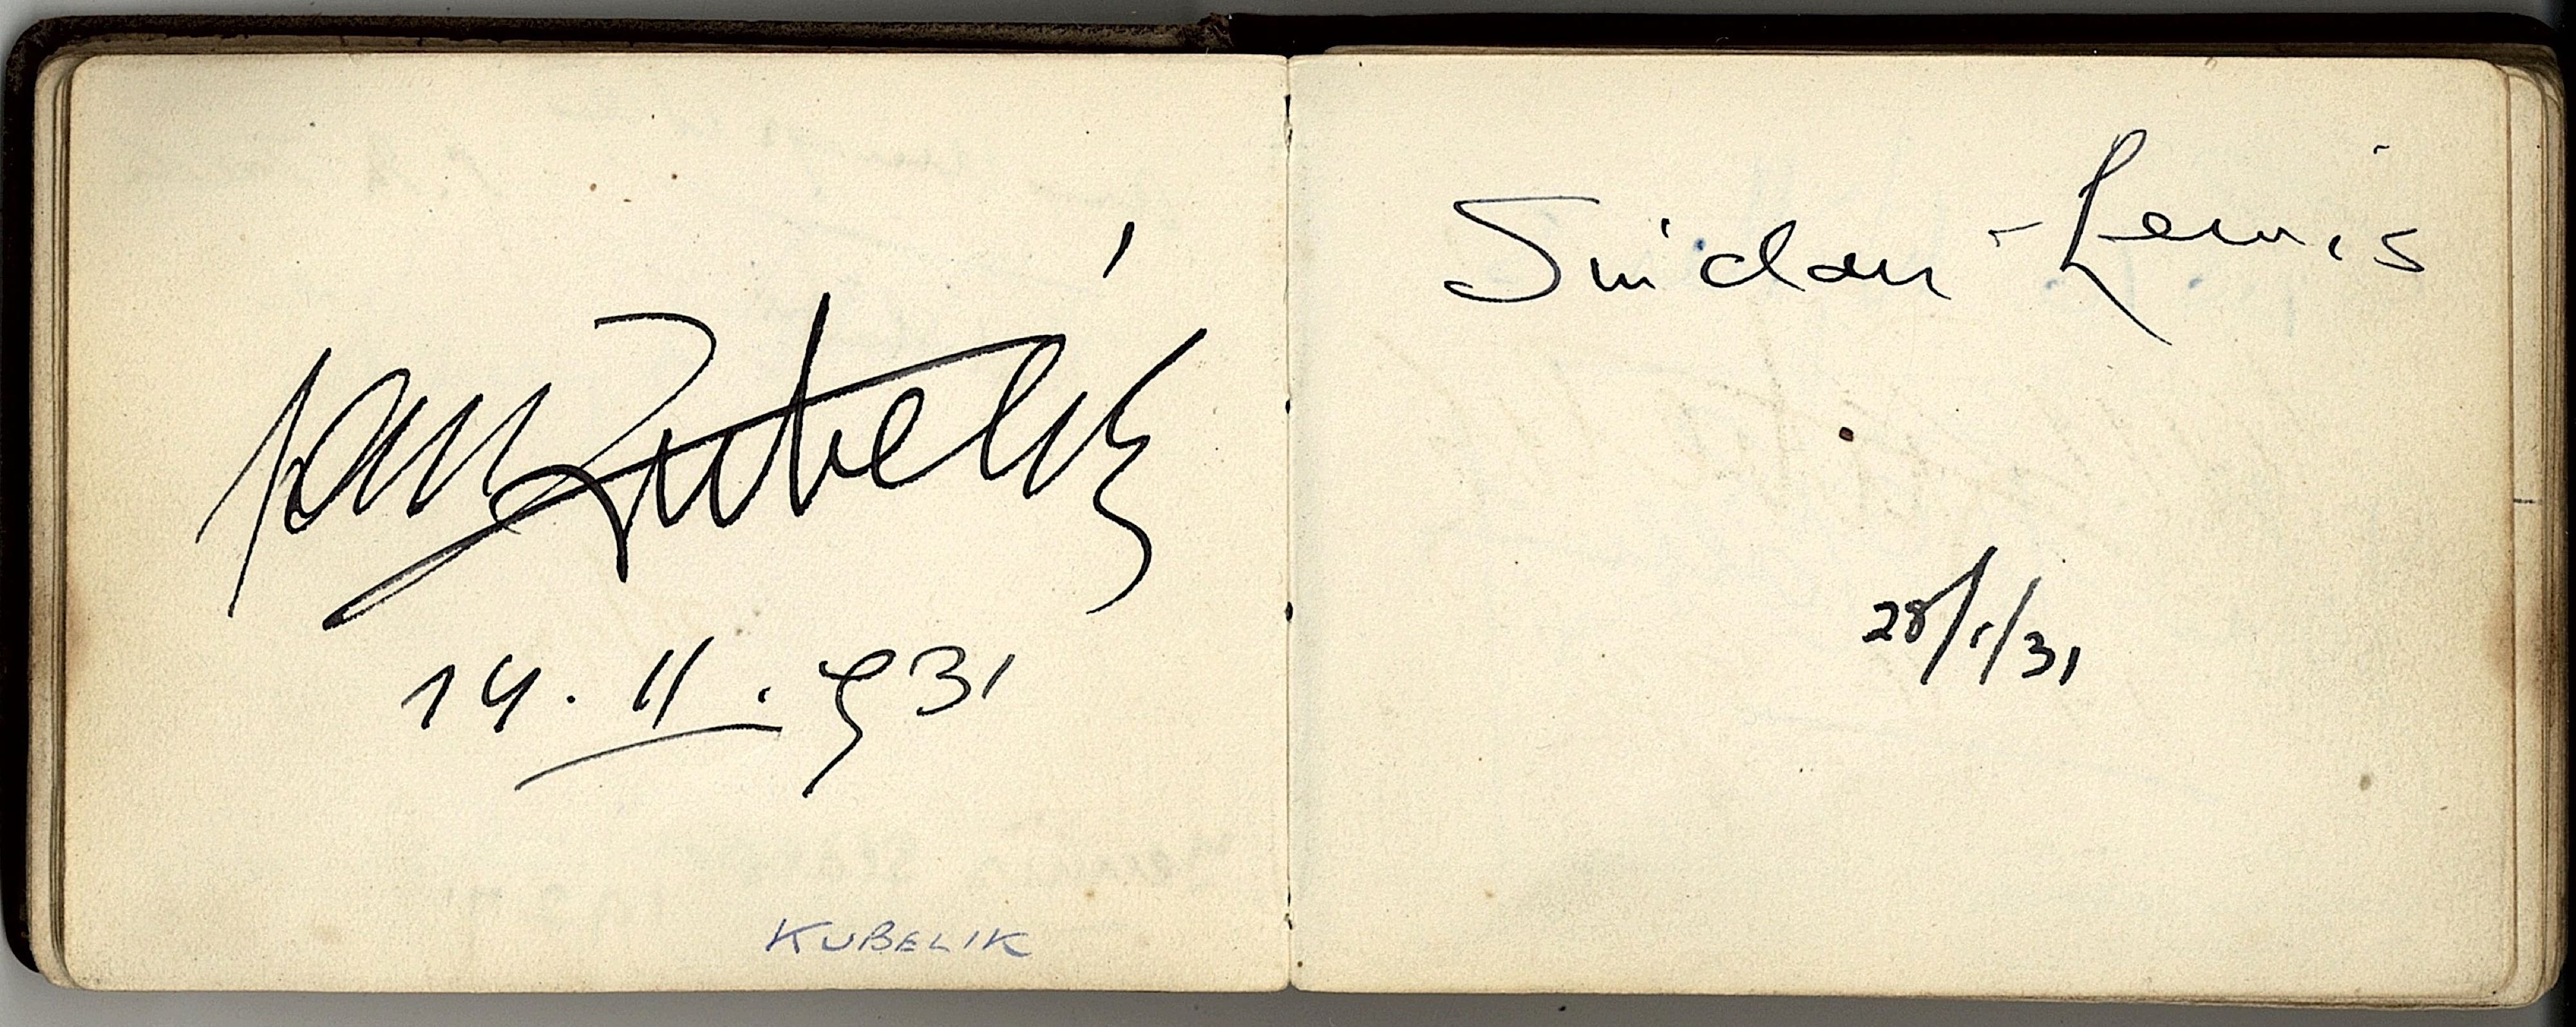 Jan Kubelík
14. II. 931
KUBELIK
Sinclair Lewis
28/1/31